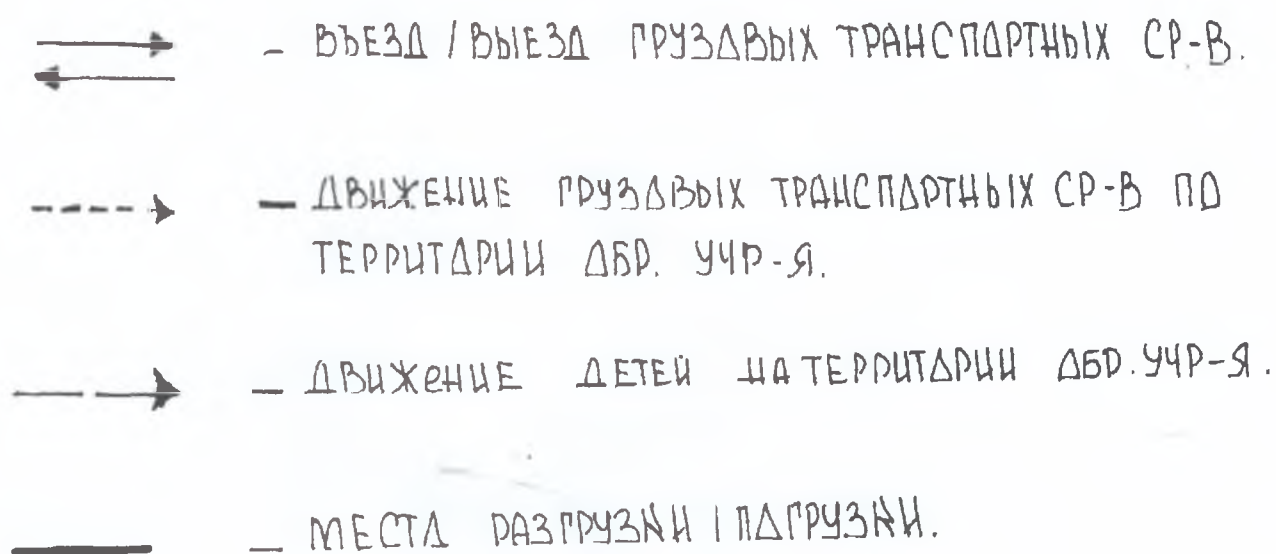 - ВЪЕЗД / ВЫЕЗД ГРУЗОВЫХ ТРАНСПОРТНЫХ СР-В.
- ДВИЖЕНИЕ ГРУЗОВЫХ ТРАНСПОРТНЫХ СР-В ПО
ТЕРРИТОРИИ ОБР. УЧР-Я.
- ДВИЖЕНИЕ ДЕТЕЙ НА ТЕРРИТОРИИ ОБР. УЧР-Я.
- МЕСТА РАЗГРУЗКИ / ПОГРУЗКИ.